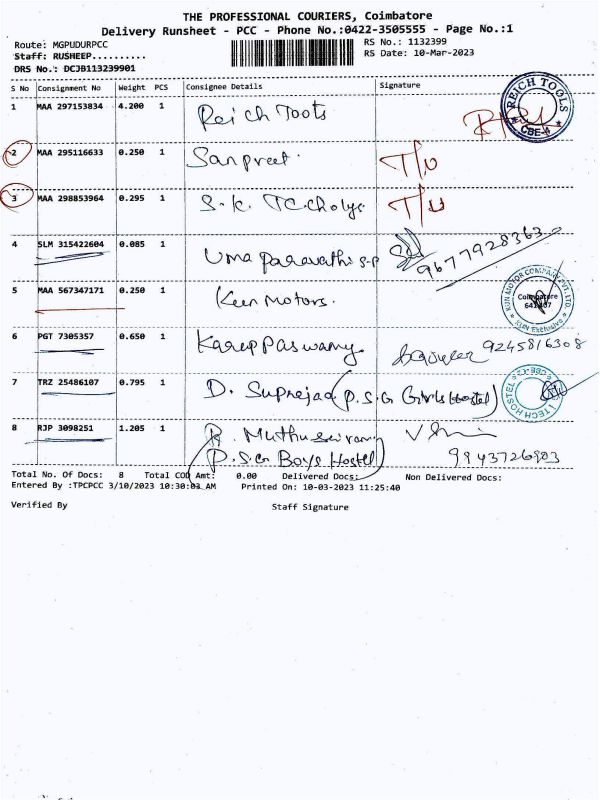 THE PROFESSIONAL COURIERS, Coimbatore
Delivery Runsheet - PCC - Phone No.:0422-3505555 - Page No.:1
Route: MGPUDURPCC
RS No.: 1132399
Staff: RUSHEEP..........
RS Date: 10-Mar-2023
DRS No.: DCJB113239901
S No Consignment No Weight PCS Consignee Details Signature
1 MAA 297153834 4.200 1 Reich Tools
REICH TOOLS CBE-4
2 MAA 295116633 0.250 1 Sanpreet.
3 MAA 298853964 0.295 1 S.K.
4 SLM 315422604 0.085 1 Uma Paravathi S.P 9677928363
5 MAA 567347171 0.250 1 Kun Motors.
KUN MOTOR COMPANY PVT. LTD. Coimbatore KUN Exclusive
6 PGT 7305357 0.650 1 Karuppaswamy 9245816308
7 TRZ 25486107 0.795 1 D. (P.S.G Girls Hostel)
I TECH HOSTEL
8 RJP 3098251 1.205 1 R.
(P.S.G Boys Hostel) 9943726903
Total No. Of Docs: 8 Total COD Amt: 0.00 Delivered Docs: Non Delivered Docs:
Entered By :TPCPCC 3/10/2023 10:30:03 AM Printed On: 10-03-2023 11:25:40
Verified By Staff Signature